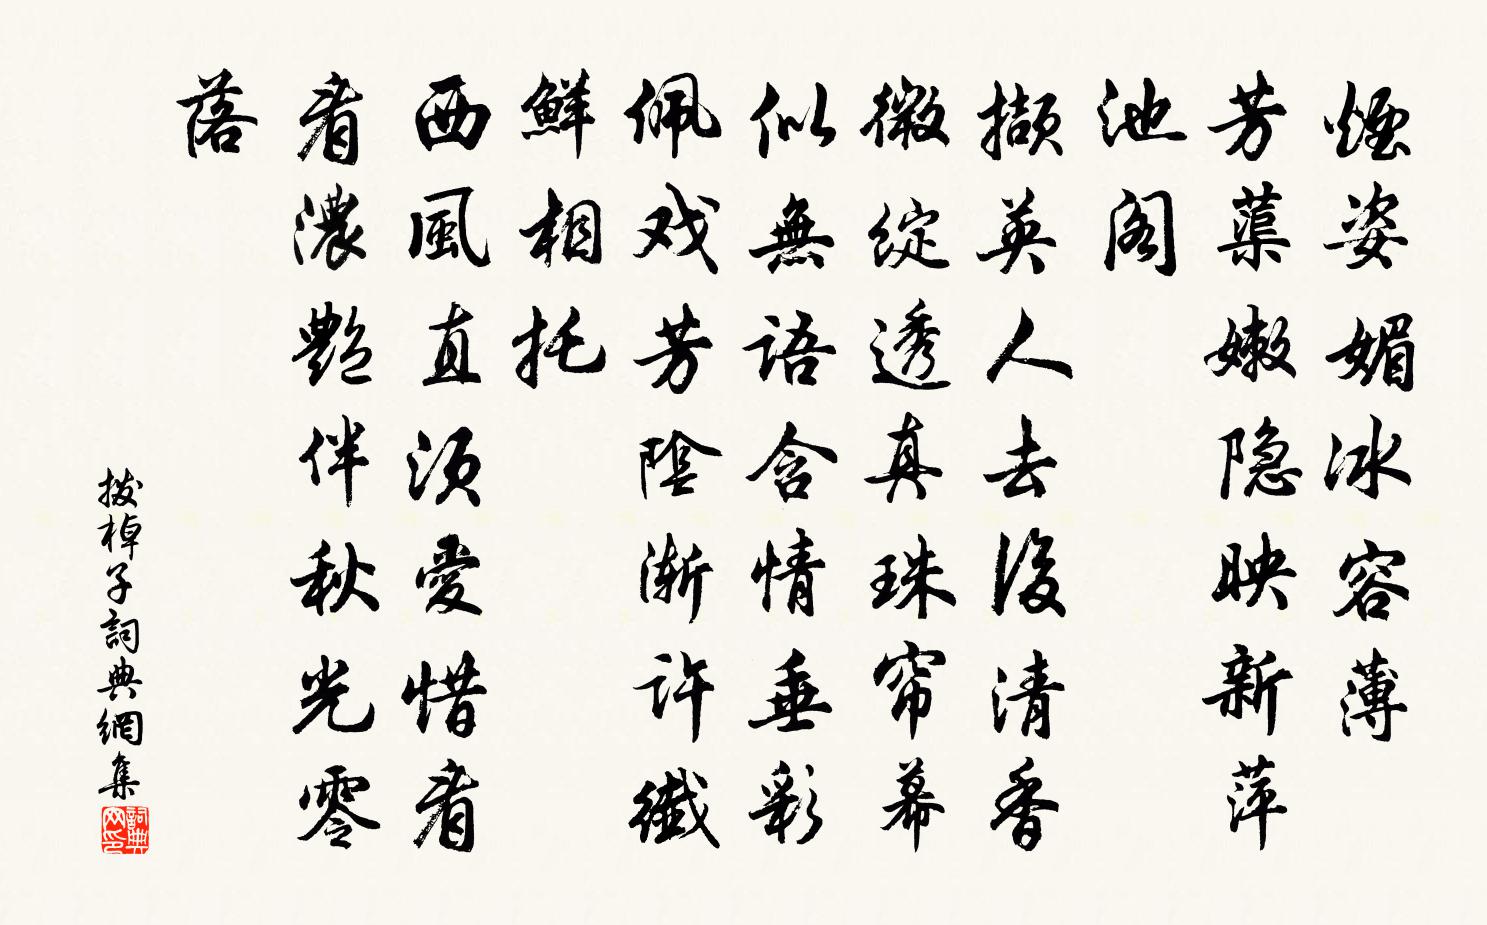 煙姿媚冰容薄
芳蕖嫩隐映新萍
池阁
擷英人去後清香
微绽透真珠帘幕
似無語含情垂彩
佩戏芳陰渐许纖
鮮相托
西風直须愛惜看
看濃艷伴秋光零
落
拨棹子詞典網集
詞典网印